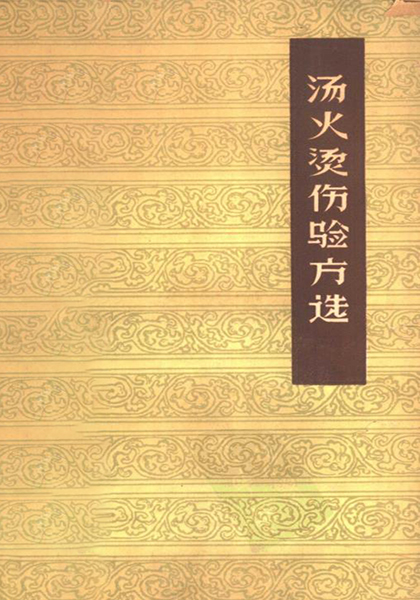 汤火烫伤验方选